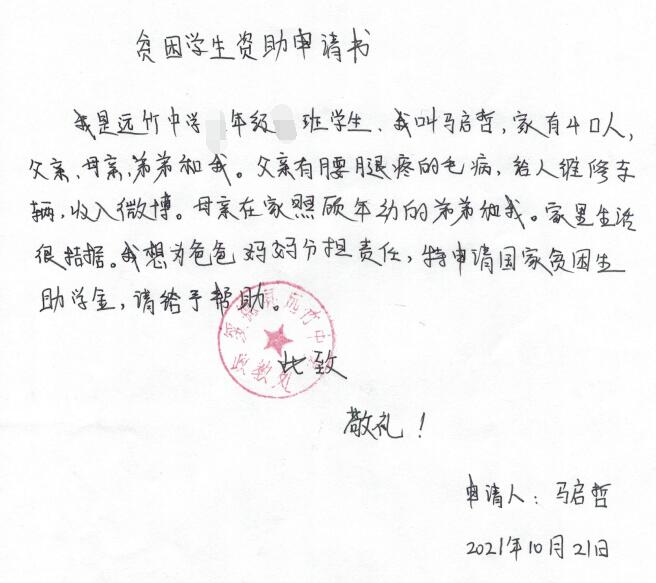 贫困学生资助申请书
我是远竹中学年级班学生、我叫马启哲，家有4口人，
父亲、母亲、弟弟和我。父亲有腰腿疼的毛病，给人维修车
辆，收入微博。母亲在家照顾年幼的弟弟和我。家里生活
很拮据。我想为爸爸妈妈分担责任，特申请国家贫困生
助学金，请给予帮助。
远竹中
政教处
此致
敬礼！
申请人：马启哲
2021年10月21日